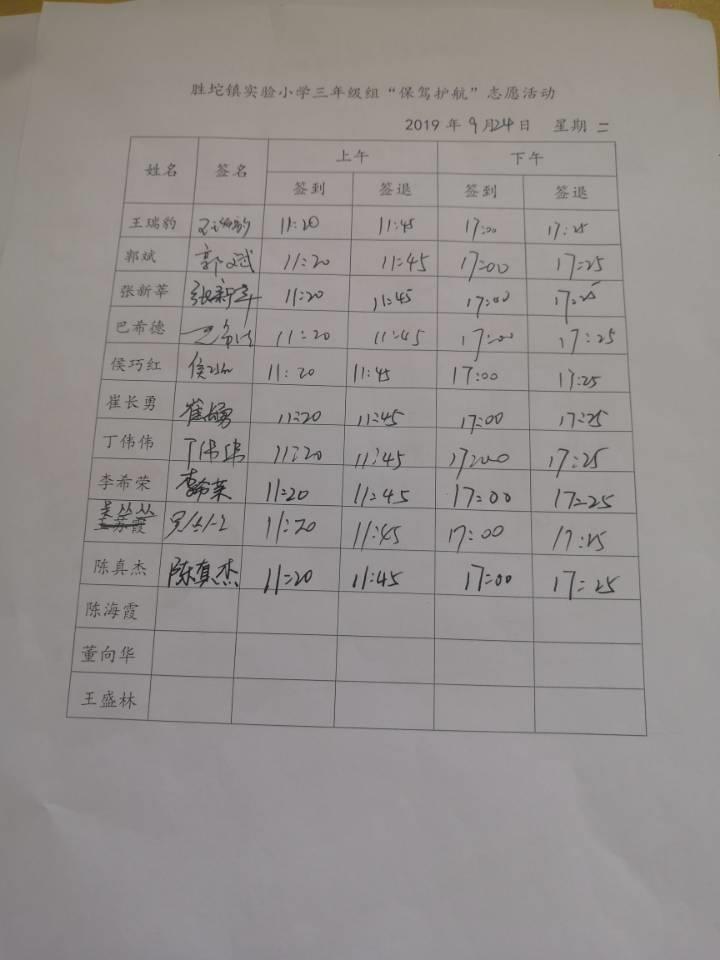 胜坨镇实验小学三年级组“保驾护航”志愿活动
2019 年 9月24日 星期 二
姓名 签名 上午 下午
签到 签退 签到 签退
王瑞豹 11:20 11:45 17:00 17:25
郭斌 郭斌 11:20 11:45 17:00 17:25
张新莘 张新莘 11:20 11:45 17:00 17:25
巴希德 11:20 11:45 17:00 17:25
侯巧红 侯巧红 11:20 11:45 17:00 17:25
崔长勇 崔长勇 11:20 11:45 17:00 17:25
丁伟伟 丁伟伟 11:20 11:45 17:00 17:25
李希荣 李希荣 11:20 11:45 17:00 17:25
11:20 11:45 17:00 17:25
陈真杰 陈真杰 11:20 11:45 17:00 17:25
陈海霞
董向华
王盛林